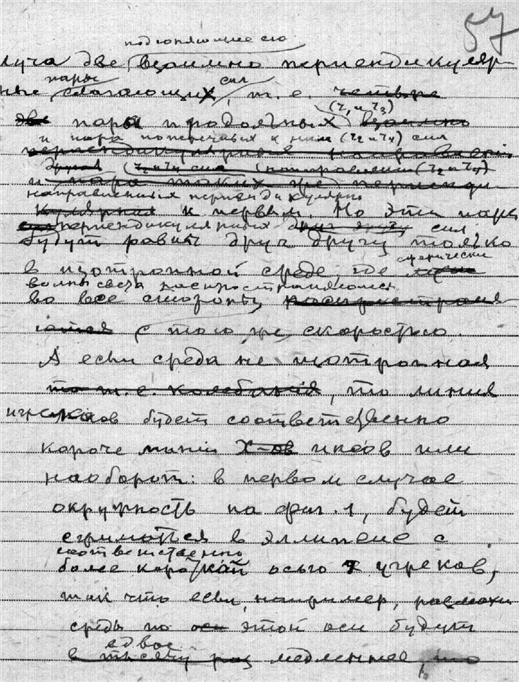 57
подгоняющее его
луча две взаимно перпендикуляр-
пары сил
ные слагающих, т. е. четыре
(r1 и r3)
две пары продольных взаимно
и пара поперечных к ним (r2 и r4) сил
перпендикулярно в направлении
(r2 и r4)
и пара таких же перпенди
направленных перпендикулярно
кулярная к первым. Но эти пары
перпендикулярных друг другу сил
будут равны друг другу только
в изотропной среде, где
волны света распространяются
во все стороны распространя
ются с тою же скоростью.
А если среда не изотропная
то т. е. колебания, то линия
игреков будет соответственно
короче линии Х-ов иксов или
наоборот: в первом случае
окружность на фиг. 1, будет
сжиматься в эллипс с
соответственно
более короткой осью игреков,
так что если, например,
среды по оси этой оси будут
вдвое
в тысячу раз медленнее, то